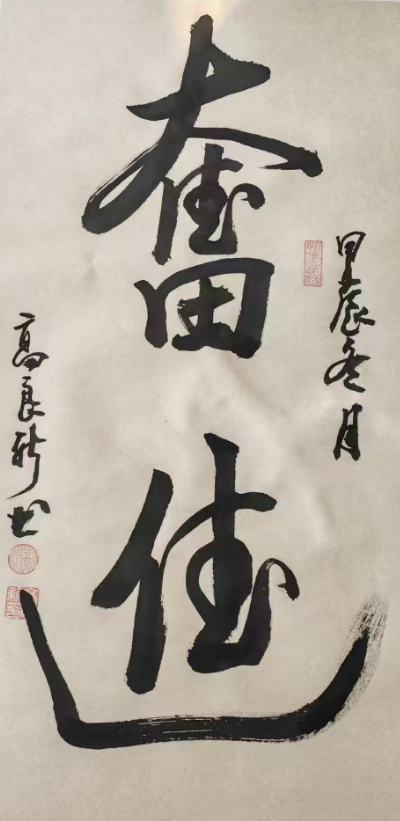 甲辰冬月
奮進
高良彬书